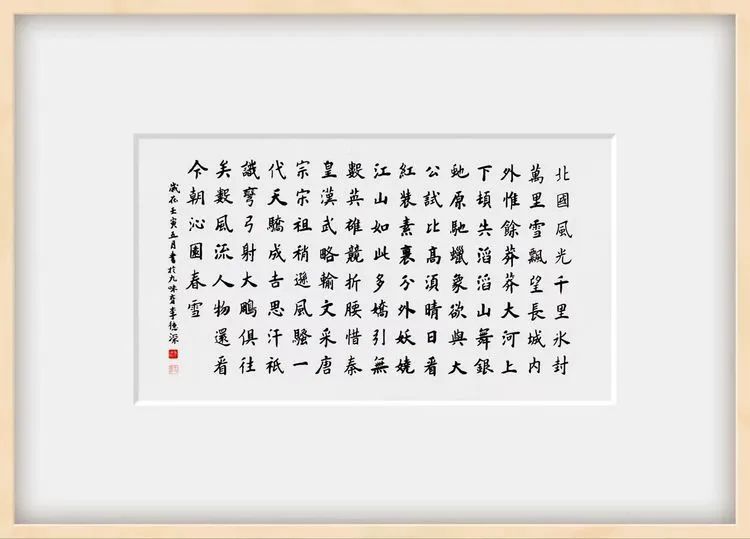 北國風光千里氷封
萬里雪飄望長城内
外惟餘莽莽大河上
下頓失滔滔山舞銀
虵原馳蠟象欲與大
公試比高須晴日看
紅裝素裹分外妖嬈
江山如此多嬌引無
數英雄競折腰惜秦
皇漢武略輸文采唐
宗宋祖稍遜風騷一
代天驕成吉思汗祇
識彎弓射大鵰俱往
矣數風流人物還看
今朝沁園春雪
歲在壬寅五月書於九味齋李德深